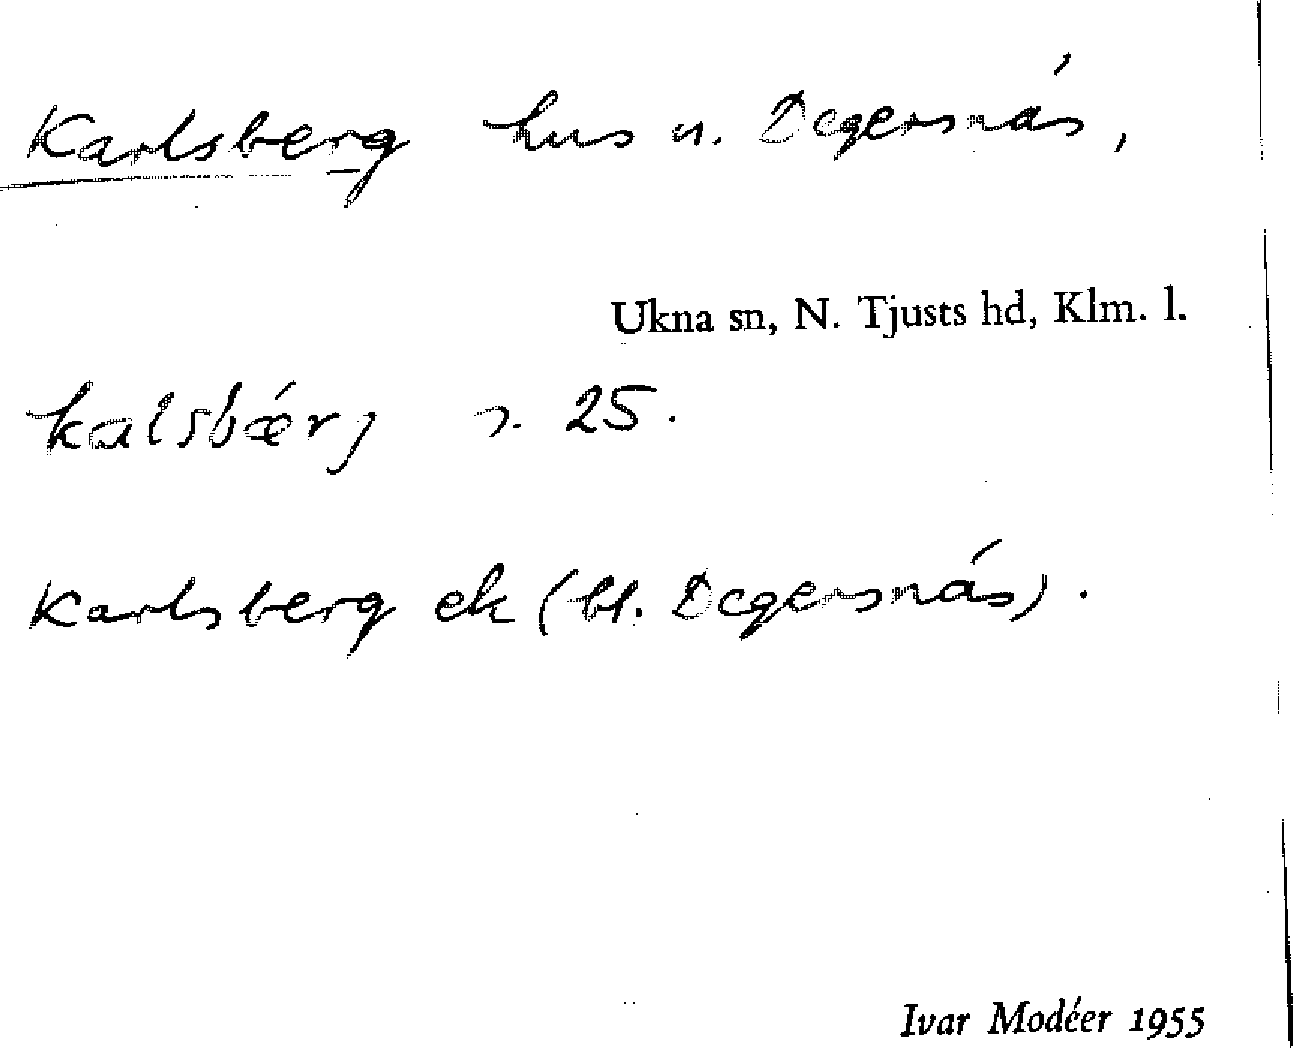 Karlsberg hus u. Degersnäs,
Ukna sn, N. Tjusts hd, Klm. l.
kalsbærj 25.
Karlsberg ek (bl. Degersnäs).
Ivar Modéer 1955